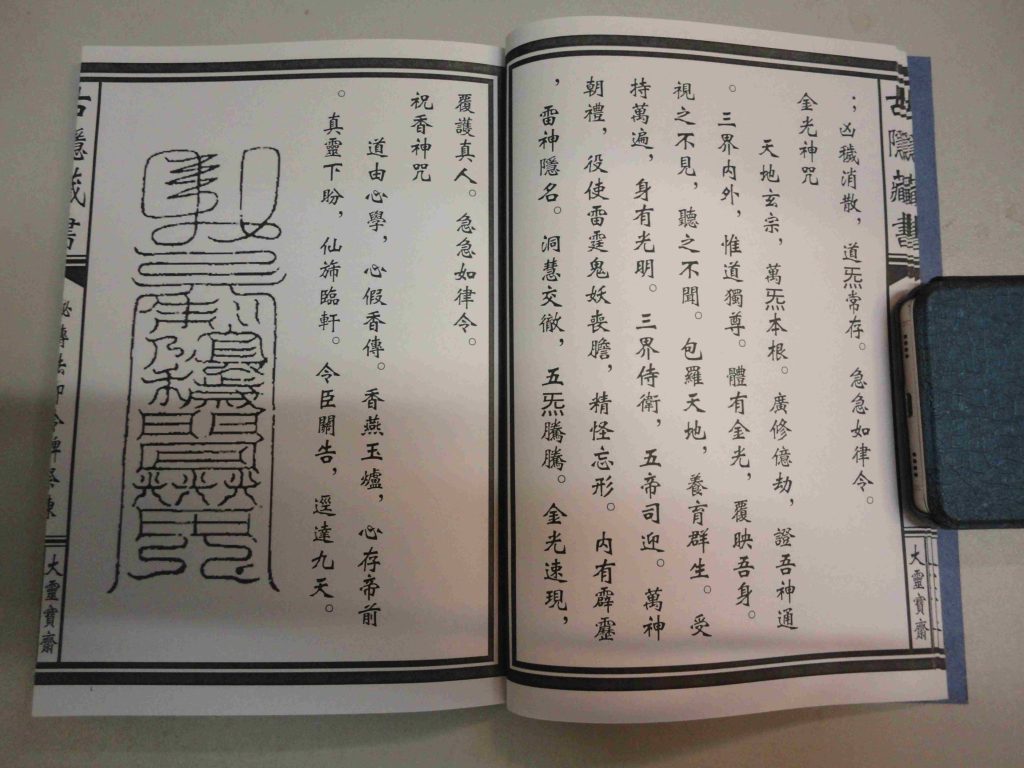 ；凶穢消散，道炁常存。急急如律令。
金光神咒
天地玄宗，萬炁本根。廣修億劫，證吾神通
。三界内外，惟道獨尊。體有金光，覆映吾身。
視之不見，聽之不聞。包羅天地，養育群生。受
持萬遍，身有光明。三界侍衛，五帝司迎。萬神
朝禮，役使雷霆鬼妖喪膽，精怪忘形。内有霹靂
，雷神隱名。洞慧交徹，五炁騰騰。金光速現，
覆護真人。急急如律令。
祝香神咒
道由心學，心假香傳。香爇玉爐，心存帝前
。真靈下盼，仙斾臨軒。令臣關告，逕達九天。
大靈寶齋
大靈寶齋